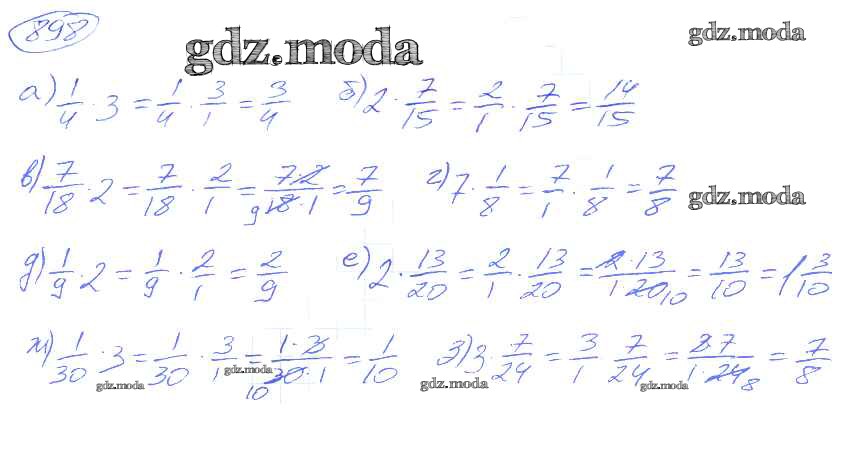 898
gdz.moda
gdz.moda
а) 1/4 · 3 = 1/4 · 3/1 = 3/4 б) 2 · 7/15 = 2/1 · 7/15 = 14/15
в) 7/18 · 2 = 7/18 · 2/1 = 7·2/9 18·1 = 7/9 г) 7 · 1/8 = 7/1 · 1/8 = 7/8
gdz.moda
д) 1/9 · 2 = 1/9 · 2/1 = 2/9 е) 2 · 13/20 = 2/1 · 13/20 = 2·13/1 20 10 = 13/10 = 1 3/10
ж) 1/30 · 3 = 1/30 · 3/1 = 1·3/10 30·1 = 1/10 з) 3 · 7/24 = 3/1 7/24 = 3·7/1·24 8 = 7/8
gdz.moda gdz.moda gdz.moda gdz.moda